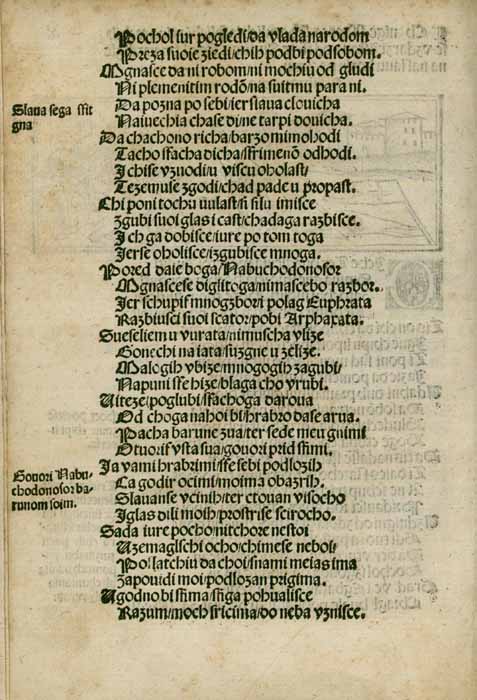 Pochol iur pogledi/da vlada narodom
Preza suoie ziedi/chih podbi podsobom.
Mgnasce da ni robom/ni mochiu od gludi
Ni plemenitim rodōm/na suitmu para ni.
Slaua sega sfit
gna
Da pozna po sebi/ier slaua clouicha
Naiuecbia chase di/ne tarpi douicha.
Da chachono richa/barzo mimohodi
Tacho sfacha dicha/sfrimenō odhodi.
Ichise vznodi/u viscu oholast/
Tezemuse zgodi/chad pade u propast.
Chi poni tochu uulast/ñ silu imisce
Zgubi suoi glas i cast/chadaga razbisce.
Ich ga dobisce/iure po tom toga
Ierse oholisce/izgubisce mnoga.
Pored daie boga/Nabuchodonosor
Mgnascese diglitoga/nimascebo razbor.
Ier schupif mnogzbor/i polag Euphrata
Razbiusci suoi scator/pobi Arphaxata.
Sueseliem u vurata/nimuscha vlize
Gonechi na iata/suzgne u zelize.
Malogih vbize/mnogogih zagubi/
Napuni sfe hize/blaga cho vrubi.
Uiteze/poglubi/sfachoga daroua
Od choga nahoi bi/hrabro dase arua.
Pacha barune zua/ter sede meu gnimi
Otuorif vsta sua/gouori prid sfimi.
Gouori Nabu-
chodonosor ba-
runom soim.
Ja vami hrabrimi/sfe sebi podlozih
Ca godir ocimi/moima obazrih.
Slauanse vcinih/ter ctouan visocho
Iglas dili moih/prostrise scirocho.
Sada iure pocho/nitchore nestoi
Uzemaglschi ocho/chimese neboi/
Poslatchiu da choi/snami meias ima
Zapouidi moi/podlozan prigima.
Ugodno bi sfima/sfiga pohualisce
Razum/moch sricima/do neba vznisce.